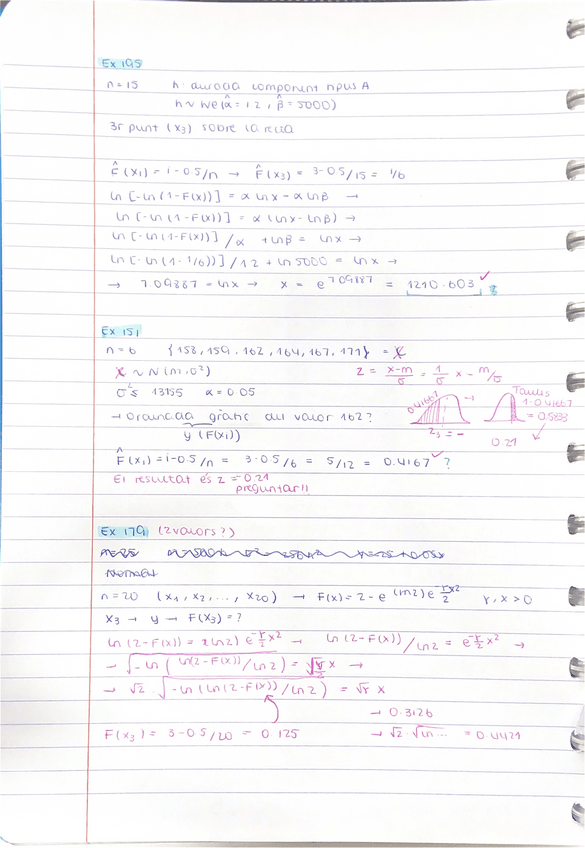 Ex 195
n = 15 h: duració component tipus A
h ~ We(α̂ = 1'2, β̂ = 5000)
3r punt (x3) sobre la recta
F̂(x1) = i - 0.5/n → F̂(x3) = 3 - 0.5/15 = 1/6
ln[-ln(1-F(x))] = α lnx - α lnβ →
ln[-ln(1-F(x))] = α(lnx - lnβ) →
ln[-ln(1-F(x))]/α + lnβ = lnx →
ln[-ln(1-1/6))]/1'2 + ln 5000 = lnx →
→ 7.09887 = lnx → x = e^7.09887 = 1210.603 ✓
Ex 151
n = 6 {158, 159, 162, 164, 167, 171} = X
X ~ N(m, σ²) Z = x-m/σ = 1/σ x - m/σ
α = 0.05
→ Ordenada gràfic del valor 162?
y (F(x1))
0.41667
Z3 = -
Taules
1-0.41667
= 0.5833
0.21
F̂(x1) = i-0.5/n = 3-0.5/6 = 5/12 = 0.4167 ✓ ?
El resultat és z = -0.21
preguntar!!
Ex 179 (2 valors?)
n = 20 (x1, x2, ..., x20) → F(x) = 2 - e^(ln2)e^-γ/2 x² γ, x > 0
x3 → y → F(x3) = ?
ln(2-F(x)) = (ln2) e^-γ/2 x² → ln(2-F(x))/ln2 = e^-γ/2 x² →
→ √-ln(ln(2-F(x))/ln2) = √γ/2 x →
→ √2 · √-ln(ln(2-F(x))/ln2) = √γ x
→ 0.3126
F(x3) = 3-0.5/20 = 0.125 → √2 · √ln... = 0.4421